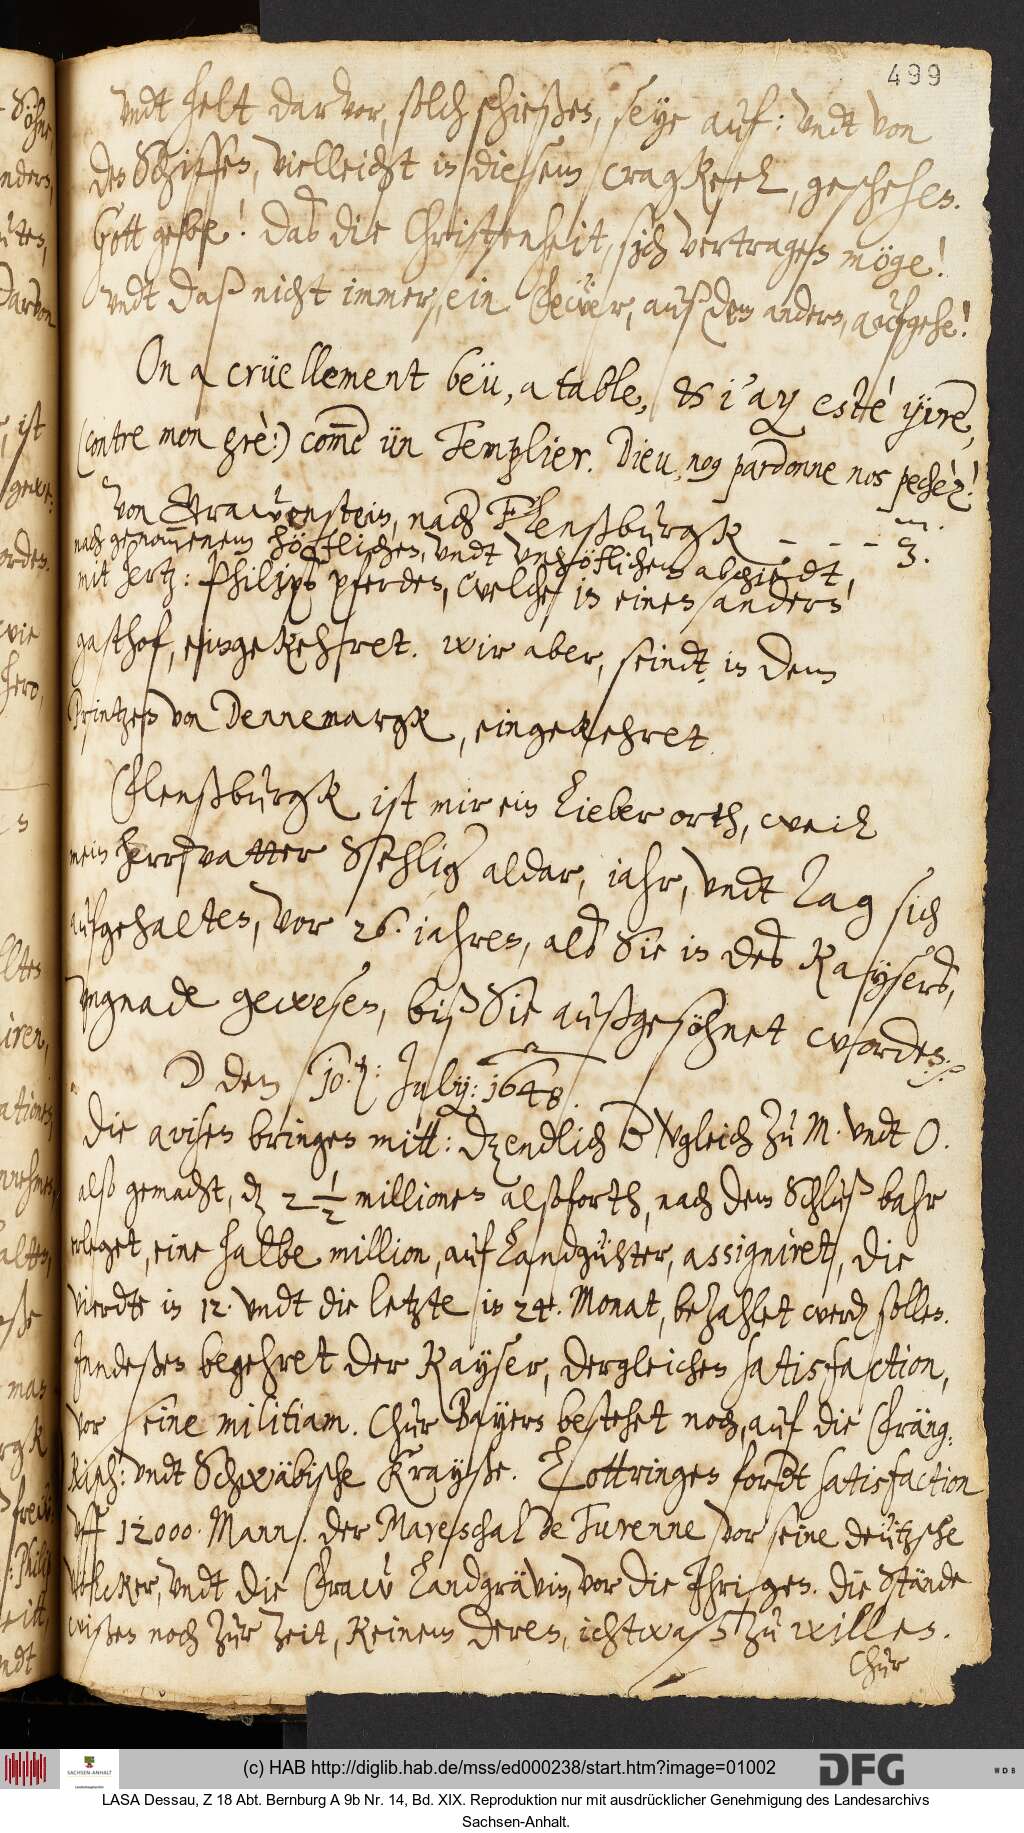 499
undt helt darvor, solch schießen, seye auf: undt von
den Schiffen, vielleicht in diesem cragkeel, geschehen.
Gott gebe! das die Christenheit, sich vertragen möge!
undt daß nicht immer, ein Fewer, auß dem andern, aufgehe!
On a cruellement beü, a table, & i'ay esté yvre,
(contre mon grè:) com̃e ün Templier. Dieu, nou pardonne nos pechèz!
Von Grawenstein, nach Flenßburgk - - - 3.
m.
nach genom̅enem höfflichen, undt unhöflichem abschiedt,
mit Hertz: Philips pferden, welche in einen andern
gasthof, eingekehret. wir aber, seindt in dem
Printzen von Dennemargk, eingekehret.
Flenßburgk ist mir ein Lieber orth, weil
mein herrvatter Sehlig aldar, iahr, undt Tag sich
aufgehalten, vor 26. iahren, als Sie in des Kaysers,
ungnade gewesen, biß Sie außgesöhnet worden.
☽ den 10.: July: 1648.
Die avisen bringen mitt: dz endlich der Vergleich zu M. undt O.
also gemacht, dz 2 1/2 millionen alsoforth, nach dem Schluß bahr
erleget, eine halbe million, auf Landgühter, assigniret, die
vierdte in 12. undt die letzte in 24. Monat, bezahlet werden sollen.
Jndeßen begehret der Kayser, dergleichen satisfaction,
vor seine militiam. Chur Bayern bestehet noch, auf die Fräng-
kisch: undt Schwäbische Krayße. Lottringen fordt satisfaction
uff 12000. Mann. der Mareschal de Turenne vor seine deützsche
Völcker, undt die Fraw Landgrävin, vor die Jhrigen. die Stände
wißen noch zur zeit, keinem deren, ichtwaß zu willen.
Chur
(c) HAB http://diglib.hab.de/mss/ed000238/start.htm?image=01002
DFG
WDB
SACHSEN-ANHALT
LASA Dessau, Z 18 Abt. Bernburg A 9b Nr. 14, Bd. XIX. Reproduktion nur mit ausdrücklicher Genehmigung des Landesarchivs
Sachsen-Anhalt.